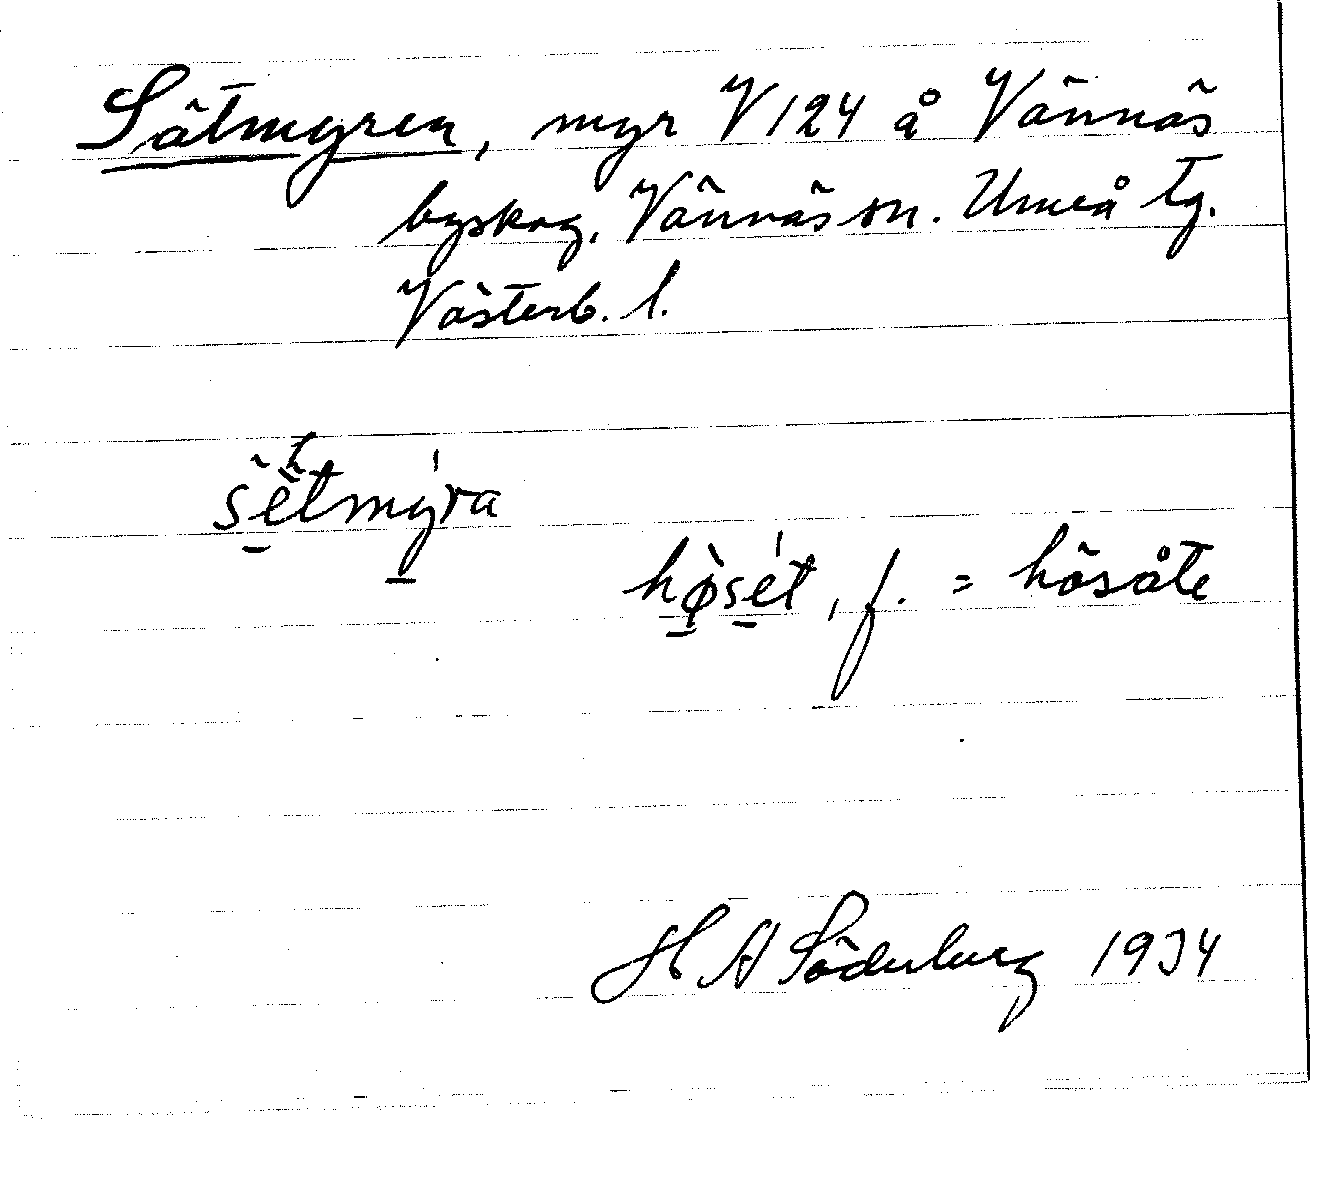 Sätmyren, myr V 124 å Vännäs
byskog, Vännäs sn. Umeå tg.
Västerb. l.
sè̱tmý̱ra
hø̱̀sé̱t, f. = hösåte
H A Söderberg 1934